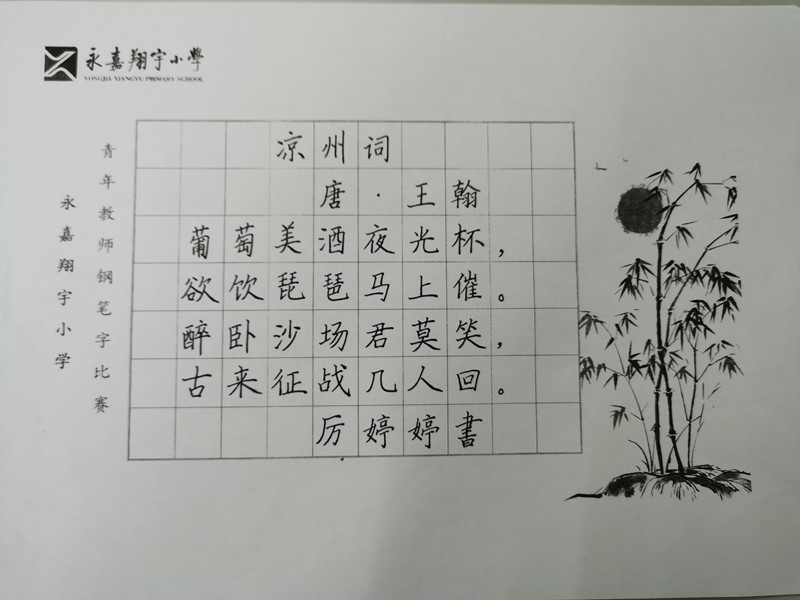 永嘉翔宇小學
YONGJIA XIANGYU PRIMARY SCHOOL
青年教师钢笔字比赛
永嘉翔宇小学
凉州词
唐·王翰
葡萄美酒夜光杯，
欲饮琵琶马上催。
醉卧沙场君莫笑，
古来征战几人回。
厉婷婷書